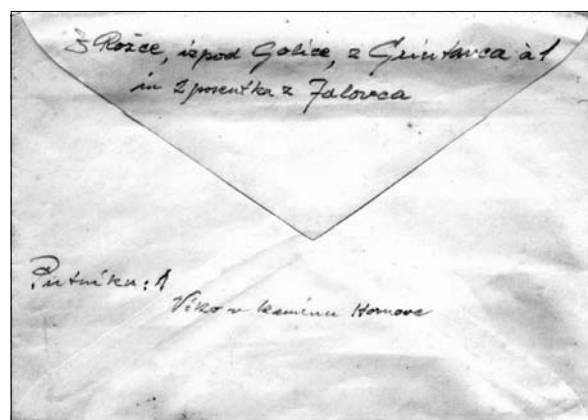 3 Rožce, izpod Golice, z Grintavca à 1
in 2 posnetka z Jalovca
Putnika: 1
Viko v kaminu Hornove